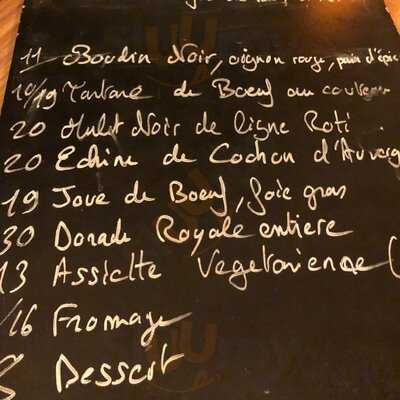 11 Boudin Noir, oignon rouge, pain d'épic
10/19 Tartare de Boeuf au couteau
20 Mulet Noir de ligne Roti.
20 Echine de Cochon d'Auverg
19 Joue de Boeuf, foie gras
30 Dorade Royale entière
13 Assiette Vegetarienne (
/16 Fromage
8 Dessert